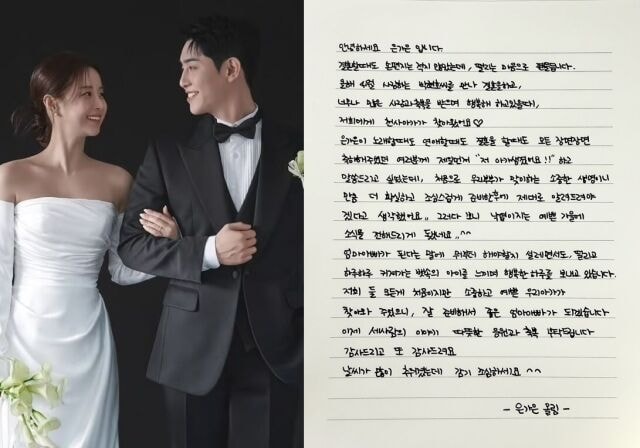 안녕하세요 은가은 입니다.
결혼할때도 손편지는 적지 않았는데, 떨리는 마음으로 적어봅니다.
올해 4월 사랑하는 박현호씨를 만나 결혼을하고,
너무나 많은 사랑과 축복을 받으며 행복해 하고있을때,
저희에게 천사아가가 찾아왔어요♡
은가은이 노래할때도 연애할때도 결혼을 할때도 모든 장면장면
축하해주셨던 여러분께 제일먼저 "저 아기생겼어요!!" 하고
말씀드리고 싶었는데, 처음으로 우리부부가 맞이하는 소중한 생명이니
만큼 더 확실하고 조심스럽게 준비한후에 제대로 알려드려야
겠다고 생각했어요.. 그러다 보니 낙엽이지는 예쁜 가을에
소식을 전해드리게 됐네요..^^
엄마아빠가 된다는 말에 뭐부터 해야할지 설레면서도, 떨리고
하루하루 커져가는 뱃속의 아이를 느끼며 행복한 하루를 보내고 있습니다.
저희 둘 모든게 처음이지만 소중하고 예쁜 우리아가가
찾아와 주었으니, 잘 준비해서 좋은 엄마아빠가 되겠습니다
이제 세사람의 이야기 따뜻한 응원과 축복 부탁드립니다
감사드리고 또 감사드려요
날씨가 많이 추워졌는데 감기 조심하세요 ^^
- 은가은 올림 -